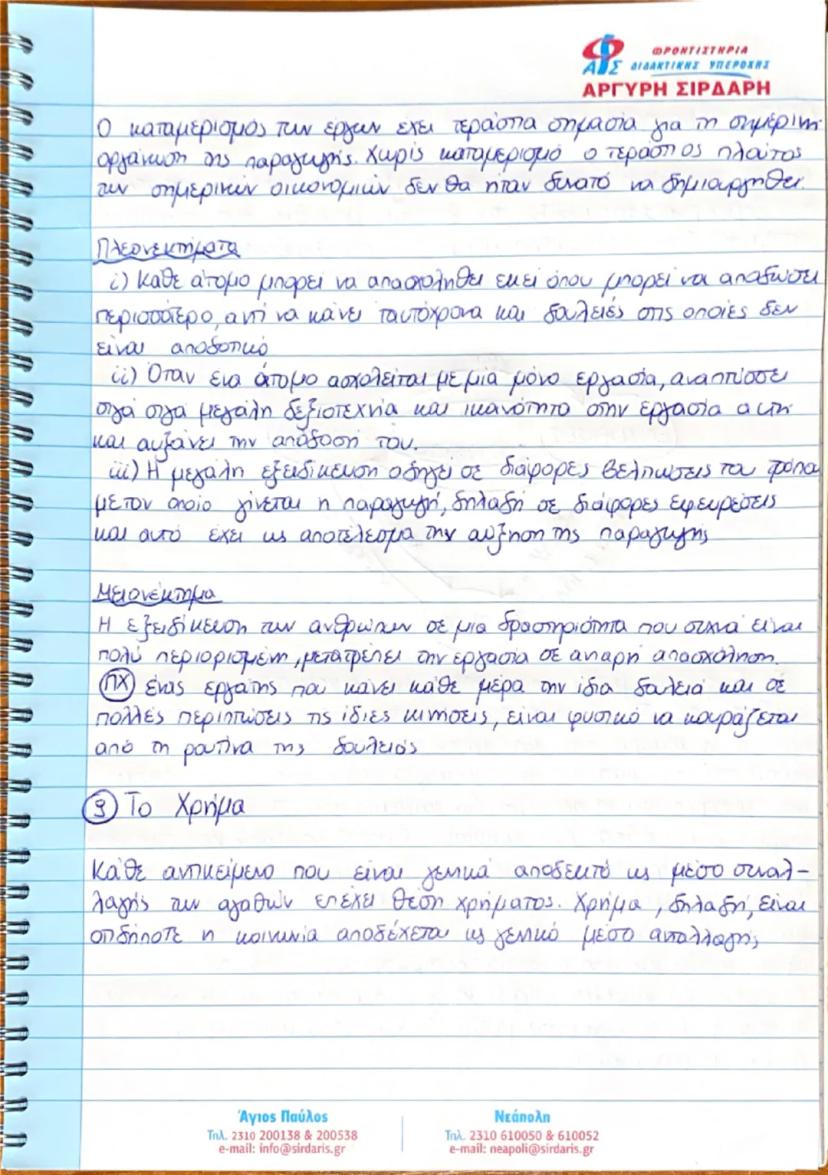 ΦΡΟΝΤΙΣΤΗΡΙΑ
ΑΣ ΔΙΔΑΚΤΙΚΗΣ ΥΠΕΡΟΧΗΣ
ΑΡΓΥΡΗ ΣΙΡΔΑΡΗ
Ο καταμερισμός των έργων έχει τεράστια σημασία για τη σημερινή
οργάνωση της παραγωγής. Χωρίς καταμερισμό ο τεράστιος πλούτος
των σημερινών οικονομιών δεν θα ήταν δυνατό να δημιουργηθεί.
Πλεονεκτήματα
i) Κάθε άτομο μπορεί να απασχοληθεί εκεί όπου μπορεί να αποδώσει
περισσότερο, αντί να κάνει ταυτόχρονα και δουλειές στις οποίες δεν
είναι αποδοτικό
ii) Όταν ένα άτομο ασχολείται με μία μόνο εργασία, αναπτύσσει
σιγά σιγά μεγάλη δεξιοτεχνία και ικανότητα στην εργασία αυτή
και αυξάνει την απόδοσή του.
iii) Η μεγάλη εξειδίκευση οδηγεί σε διάφορες βελτιώσεις του τρόπου
με τον οποίο γίνεται η παραγωγή, δηλαδή σε διάφορες εφευρέσεις
και αυτό έχει ως αποτέλεσμα την αύξηση της παραγωγής
Μειονέκτημα
Η εξειδίκευση των ανθρώπων σε μια δραστηριότητα που συχνά είναι
πολύ περιορισμένη, μετατρέπει την εργασία σε ανιαρή απασχόληση.
ΠΧ ένας εργάτης που κάνει κάθε μέρα την ίδια δουλειά και σε
πολλές περιπτώσεις τις ίδιες κινήσεις, είναι φυσικό να κουράζεται
από τη ρουτίνα της δουλειάς
9 Το Χρήμα
Κάθε αντικείμενο που είναι γενικά αποδεκτό ως μέσο συναλ-
λαγής των αγαθών επέχει θέση χρήματος. Χρήμα, δηλαδή, είναι
οτιδήποτε η κοινωνία αποδέχεται ως γενικό μέσο ανταλλαγής
Άγιος Παύλος
Τηλ. 2310 200138 & 200538
e-mail: info@sirdaris.gr
Νεάπολη
Τηλ. 2310 610050 & 610052
e-mail: neapoli@sirdaris.gr